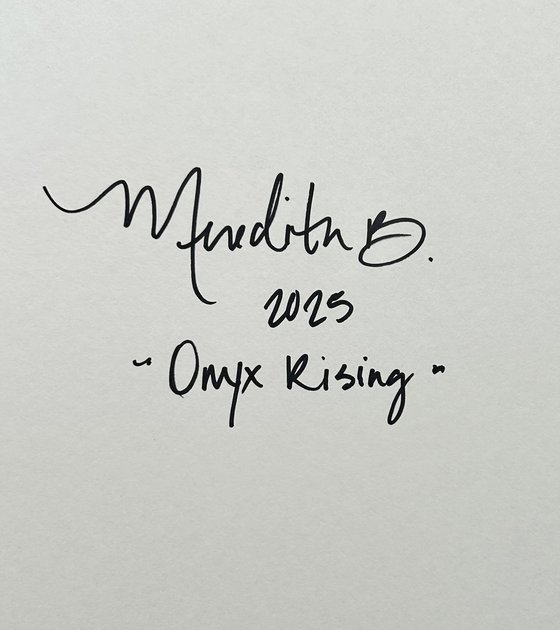 Meredith B.
2025
"Onyx Rising"